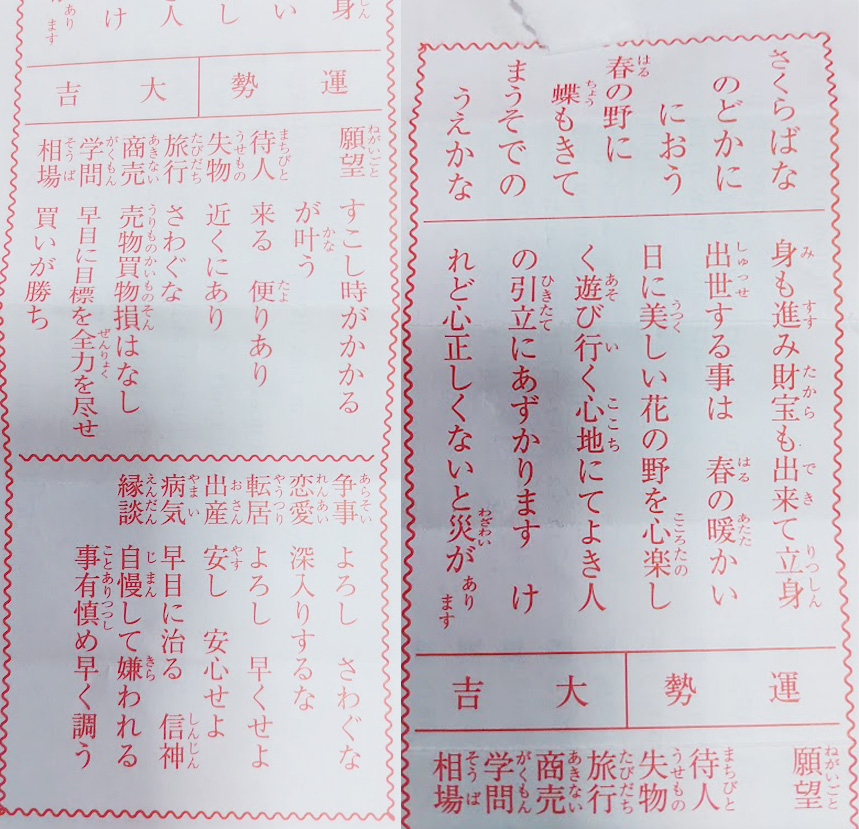 さくらばな
のどかに
におう
春の野に
蝶もきて
まうそでの
うえかな
身も進み財宝も出来て立身
出世する事は　春の暖かい
日に美しい花の野を心楽し
く遊び行く心地にてよき人
の引立にあずかります　け
れど心正しくないと災があります
運勢　大吉
願望
待人
失物
旅行
商売
学問
相場
身
い
し
人
け
あります
運勢　大吉
願望　すこし時がかかる
が叶う
待人　来る　便りあり
失物　近くにあり
旅行　さわぐな
商売　売物買物損はなし
学問　早目に目標を全力を尽せ
相場　買いが勝ち
争事　よろし　さわぐな
恋愛　深入りするな
転居　よろし　早くせよ
出産　安し　安心せよ
病気　早目に治る　信神
縁談　自慢して嫌われる
事有慎め早く調う